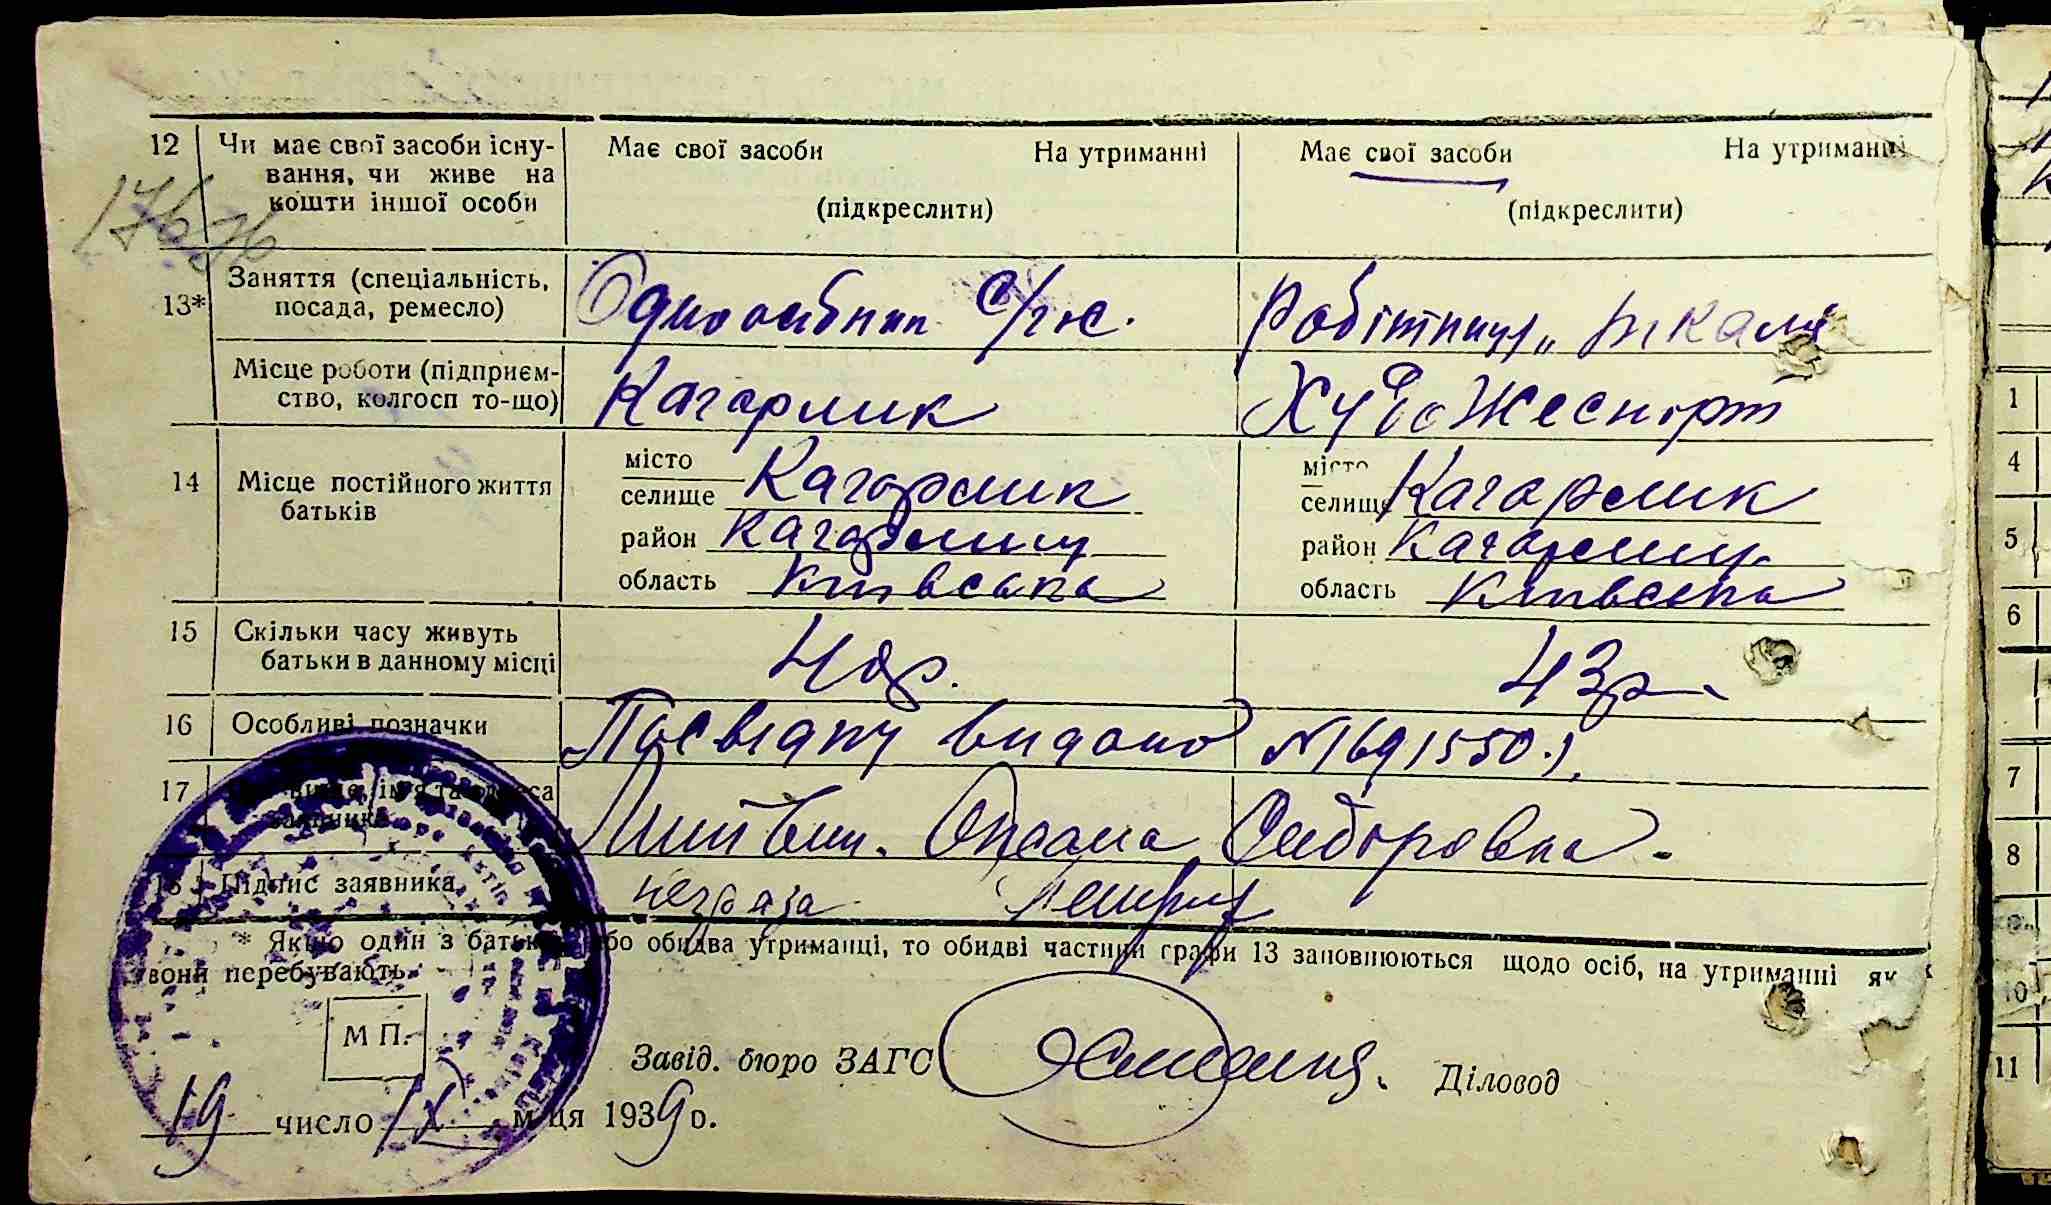 12 Чи має свої засоби існу- Має свої засоби На утриманні Має свої засоби На утриманні
вання, чи живе на
кошти іншої особи (підкреслити) (підкреслити)
13* Заняття (спеціальність, Одноосібник с/г
посада, ремесло) Робітниця, ткаля
Місце роботи (підприєм- Кагарлик Художекспорт
ство, колгосп то-що)
14 Місце постійного життя місто місто
батьків селище Кагарлик селище Кагарлик
район Кагарлиц район Кагарлиц.
область Київська область Київська
15 Скільки часу живуть 40р. 43р.
батьки в данному місці
16 Особливі позначки Посвідку видано №691550.
17 ім'я та Литвин. Оксана Сидоровна.
заявника
Підпис заявника неграм
* Якщо один з батьків або обидва утриманці, то обидві частини графи 13 заповнюються щодо осіб, на утриманні як
вони перебувають.
М П.
Завід. бюро ЗАГС Діловод
19 число IX м-ця 1939 р.
1
4
5
6
7
8
10
11